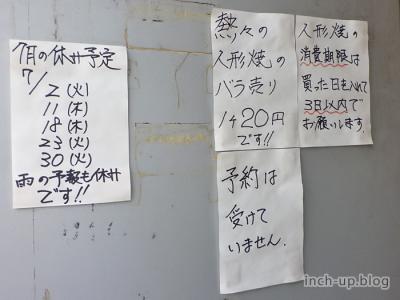 7月の休み予定
7/
2(火)
11(木)
18(木)
23(火)
30(火)
雨の予報も休み
です!!
熱々の
人形焼の
バラ売り
1ケ20円
です!!
人形焼の
消費期限は
買った日を入れて
3日以内で
お願いします
予約は
受けて
いません.
inch-up.blog